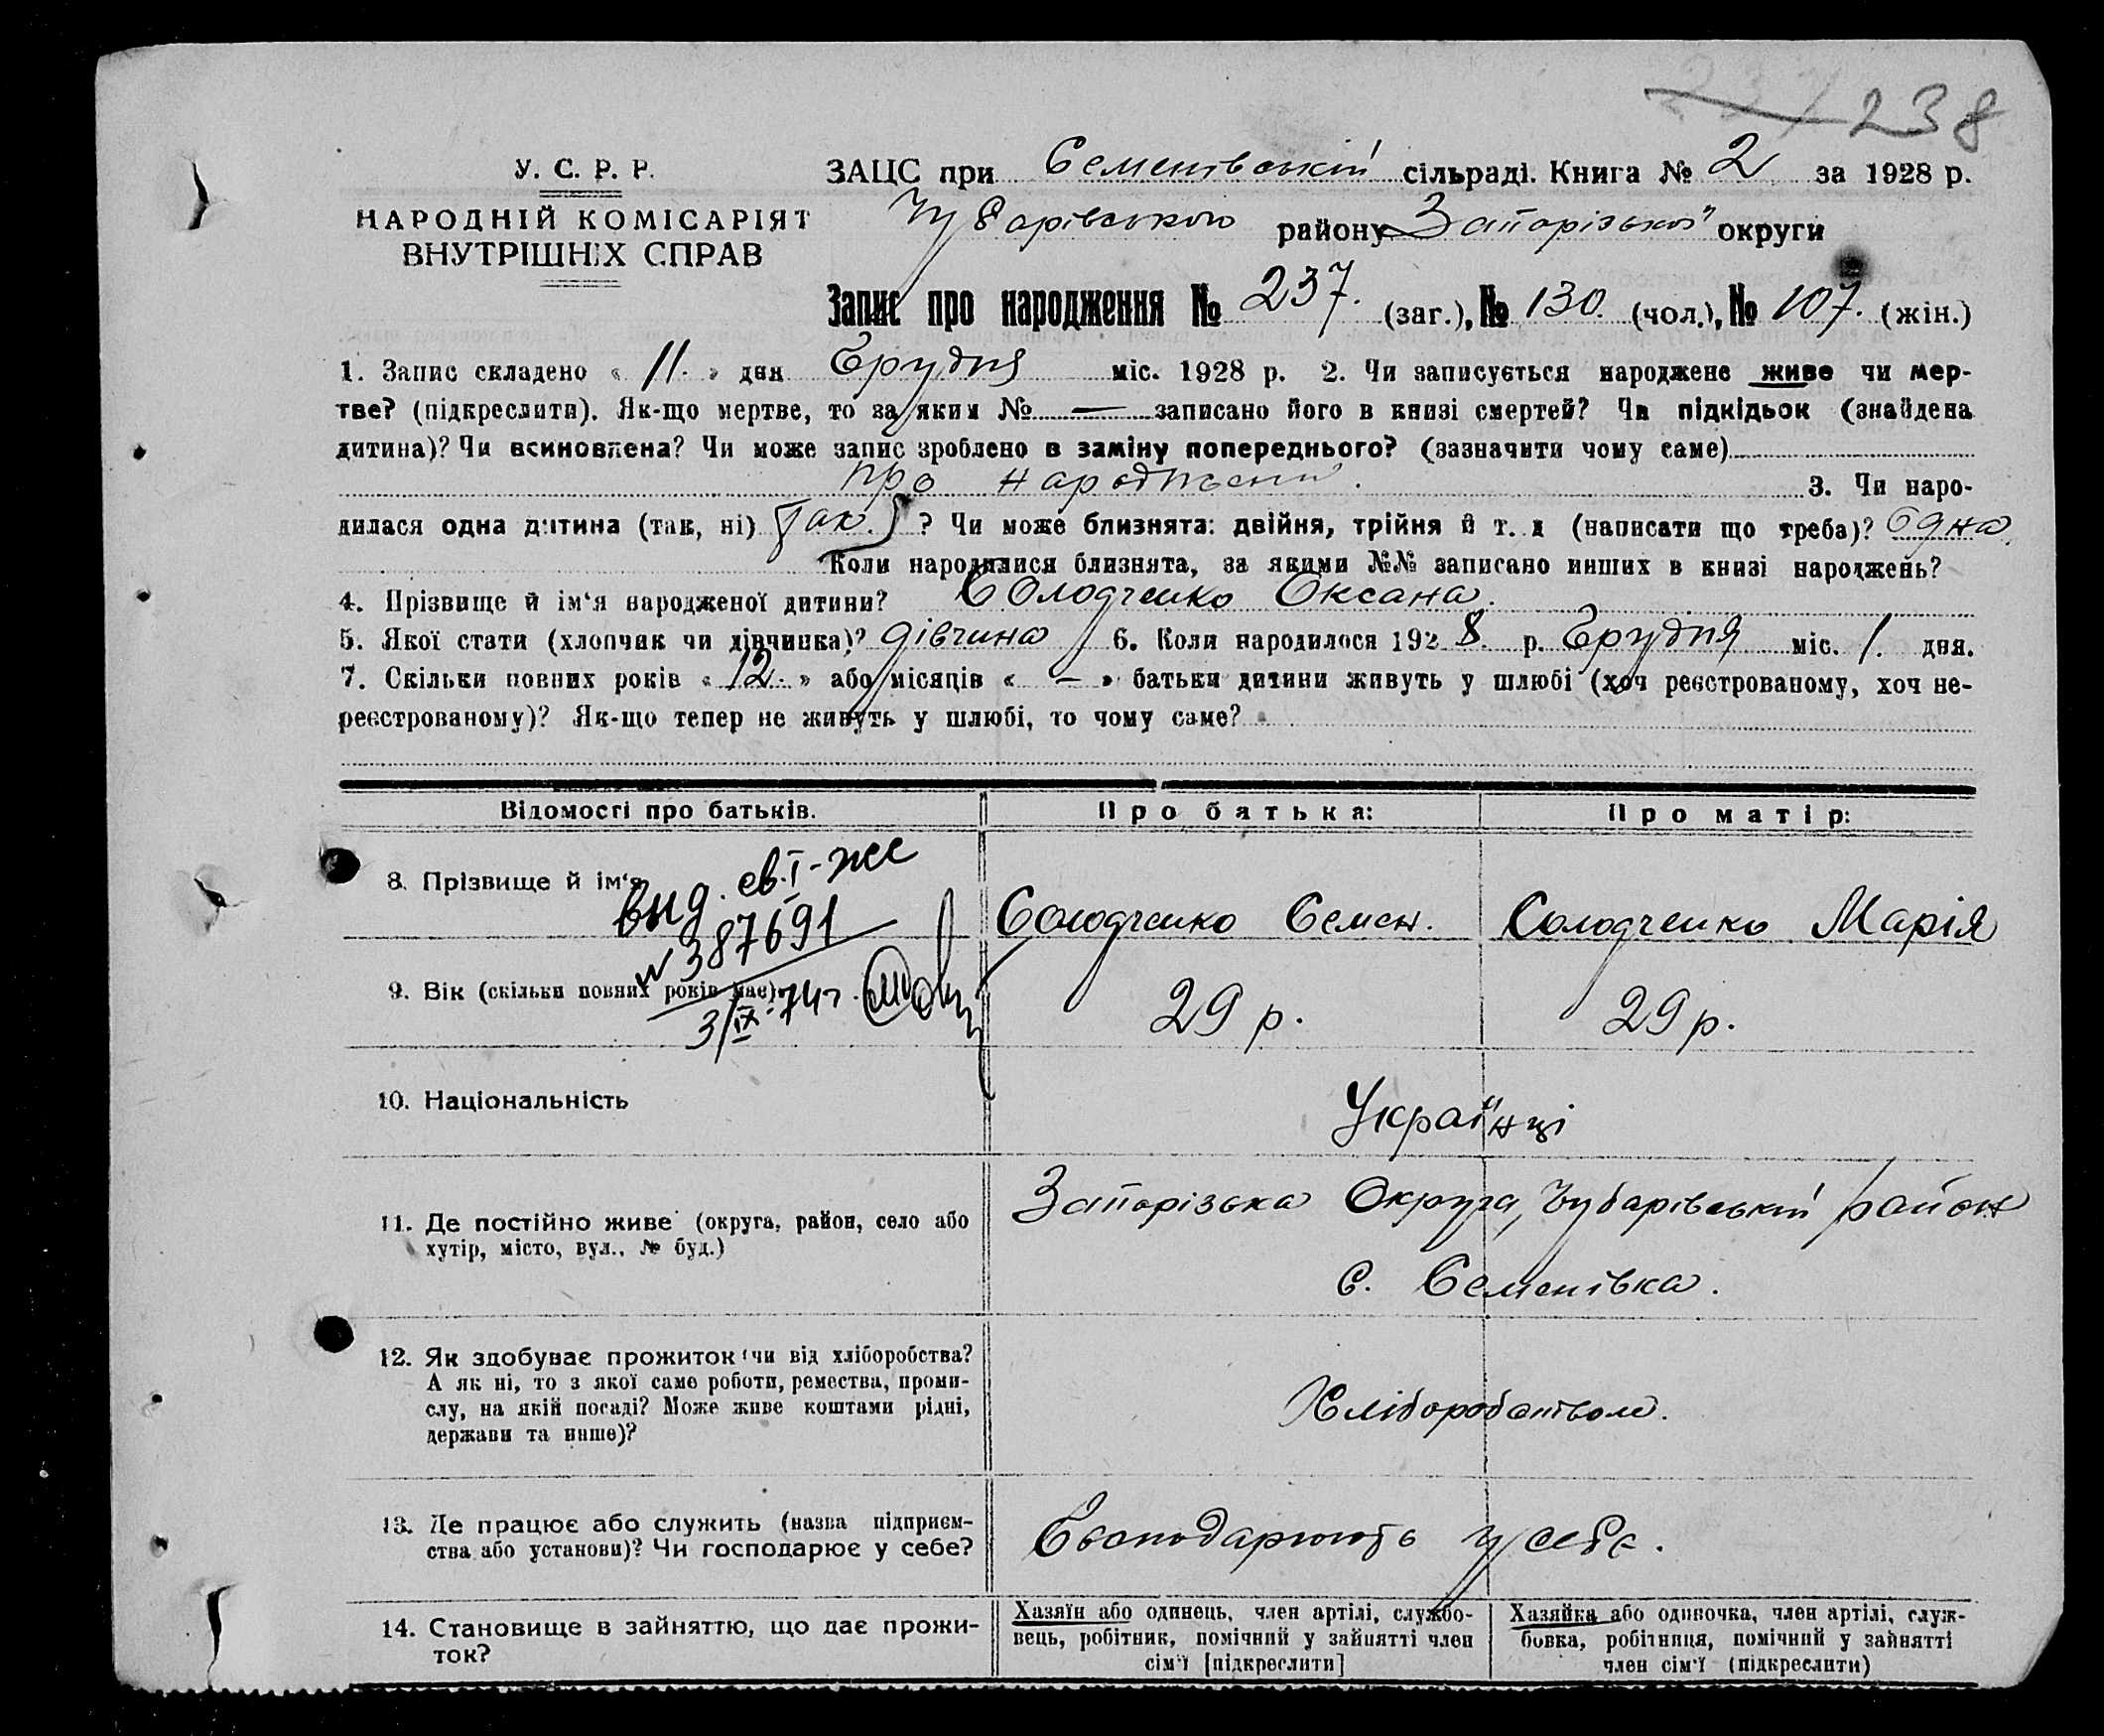 237 238
У. С. Р. Р.
НАРОДНІЙ КОМІСАРІЯТ
ВНУТРІШНІХ СПРАВ
ЗАЦС при Семенівській сільраді. Книга № 2 за 1928 р.
Чубарівського району Запорізької округи
Запис про народження № 237. (заг.), № 130. (чол.), № 107. (жін.)
1. Запис складено « 11. » дня Грудня міс. 1928 р. 2. Чи записується народжене живе чи мер-
тве? (підкреслити). Як-що мертве, то за яким № — записано його в книзі смертей? Чи підкідьок (знайдена
дитина)? Чи всиновлена? Чи може запис зроблено в заміну попереднього? (зазначити чому саме)
про народження. 3. Чи наро-
дилася одна дитина (так, ні) {так.} ? Чи може близнята: двійня, трійня й т. д (написати що треба)? Одна
Коли народилися близнята, за якими №№ записано инших в книзі народжень?
4. Прізвище й ім‘я народженої дитини? Солодченко Оксана.
5. Якої стати (хлопчик чи дівчинка)? дівчина 6. Коли народилося 1928. р. Грудня міс. 1. дня.
7. Скільки повних років « 12. » або місяців « — » батьки дитини живуть у шлюбі (хоч реєстрованому, хоч не-
реєстрованому)? Як-що тепер не живуть у шлюбі, то чому саме?
Відомості про батьків.
Про батька:
Про матір:
8. Прізвище й ім‘я
Солодченко Семен.
Солодченко Марія
вид. св. І-же
№ 387691
3/IX-74г.
9. Вік (скільки повних років має)
29 р.
29 р.
10. Національність
Українці
11. Де постійно живе (округа, район, село або
хутір, місто, вул., № буд.)
Запорізька Округа, Чубарівський район
с. Семенівка.
12. Як здобуває прожиток чи від хліборобства?
А як ні, то з якої саме роботи, ремества, проми-
слу, на якій посаді? Може живе коштами рідні,
держави та инше)?
Хліборобством.
13. Де працює або служить (назва підприєм-
ства або установи)? Чи господарює у себе?
Господарюють у себе.
14. Становище в зайняттю, що дає прожи-
ток?
Хазяїн або одинець, член артілі, службо-
вець, робітник, помічний у зайнятті член
сім‘ї [підкреслити]
Хазяйка або одиночка, член артілі, служ-
бовка, робітниця, помічний у зайнятті
член сім‘ї (підкреслити)